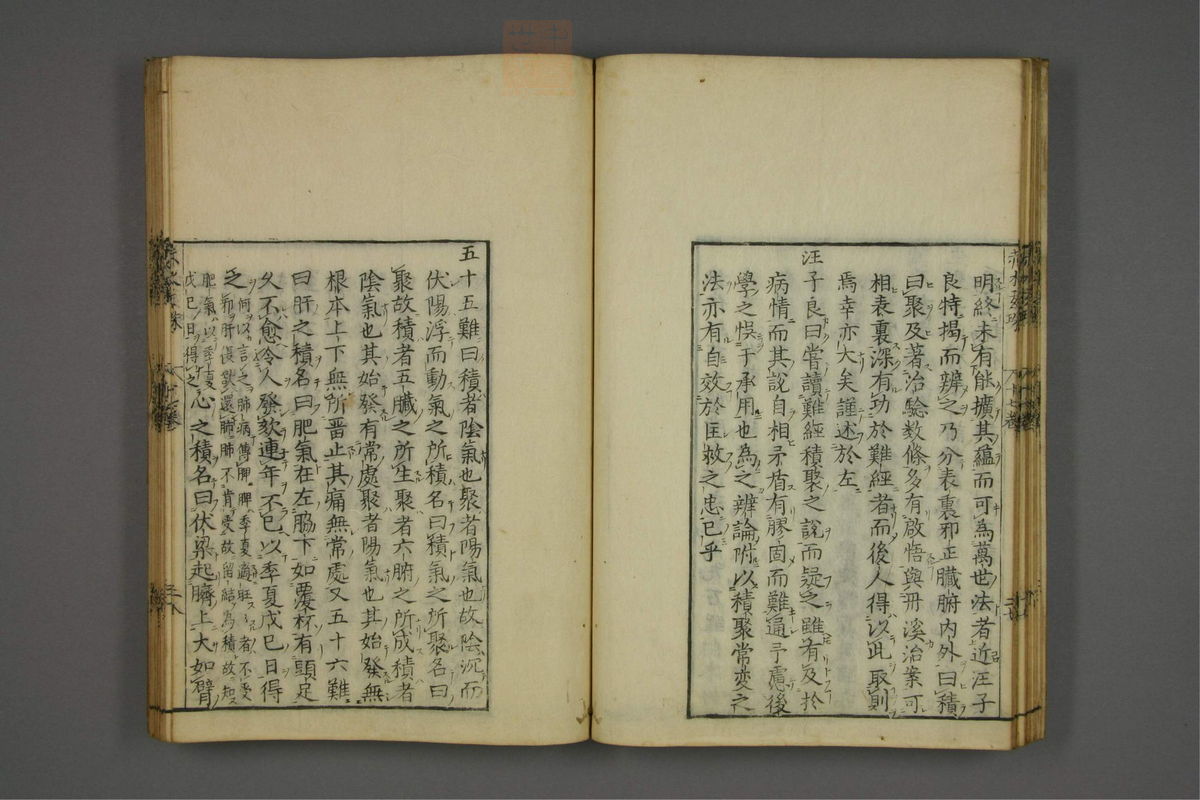 明終未有能擴其蘊而可為萬世法者近汪子
良特揭而辨之乃分表裏邪正臟腑内外曰積
曰聚及著治驗数條多有啟悟與丹溪治案可
相表裏深有功於難經者而後人得以此取則
焉幸亦大矣謹述於左
汪子良曰嘗讀難經積聚之說而疑之雖有及於
病情而其說自相矛盾有膠固而難通予慮後
學之悞于承用也為之辨論附以積聚常変之
法亦有自效於匡救之忠已乎
五十五難曰積者陰氣也聚者陽氣也故陰沉而
伏陽浮而動氣之所積名曰積氣之所聚名曰
聚故積者五臟之所生聚者六腑之所成積者
陰氣也其始發有常處聚者陽氣也其始發無
根本上下無所畱止其痛無常處又五十六難
曰肝之積名曰肥氣在左脇下如覆杯有頭足
久不愈令人發欬連年不已以季夏戊己日得
之何以言之肺病傳肝肝季夏適旺旺者不受
邪肝復欲還肺肺不肯受故留結為積故知
肥氣以季夏
戊己日得之心之積名曰伏梁起臍上大如臂